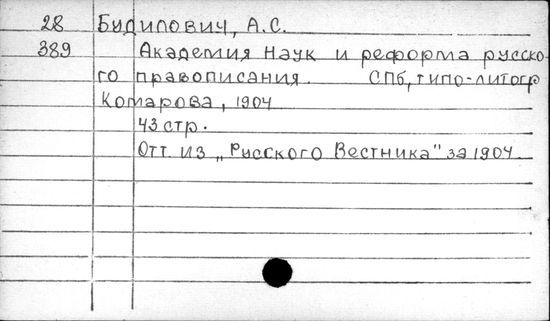 28 Будилович, А.С.
389 Академия наук и реформа русско-
го правописания. СПб, типо-литогр
Комарова, 1904
43 стр.
Отт. из „Русского Вестника" за 1904.